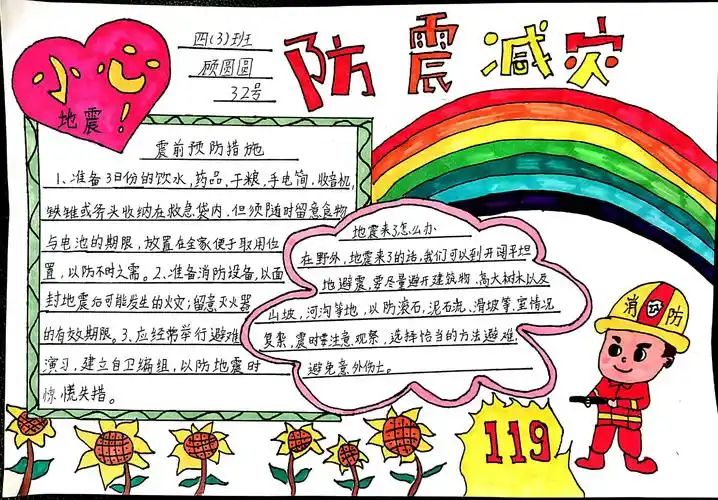 四(3)班
顾圆圆
32号
防震减灾
小心
地震!
震前预防措施
1、准备3日份的饮水,药品,干粮,手电筒,收音机,
铁锥或斧头收纳在救急袋内,但须随时留意食物
与电池的期限,放置在全家便于取用位
置,以防不时之需。2、准备消防设备,以面
封地震后可能发生的火灾;留意灭火器
的有效期限。3、应经常举行避难
演习,建立自卫编组,以防地震时
惊慌失措。
地震来了怎么办
在野外,地震来了的话,我们可以到开阔平坦
地避震,要尽量避开建筑物,高大树木以及
山坡,河沟等地,以防滚石,泥石流,滑坡等,室情况
复杂,震时要注意观察,选择恰当的方法避难,
避免意外伤亡。
消防
119